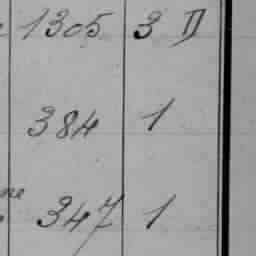 1305 3 II
384 1
347 1